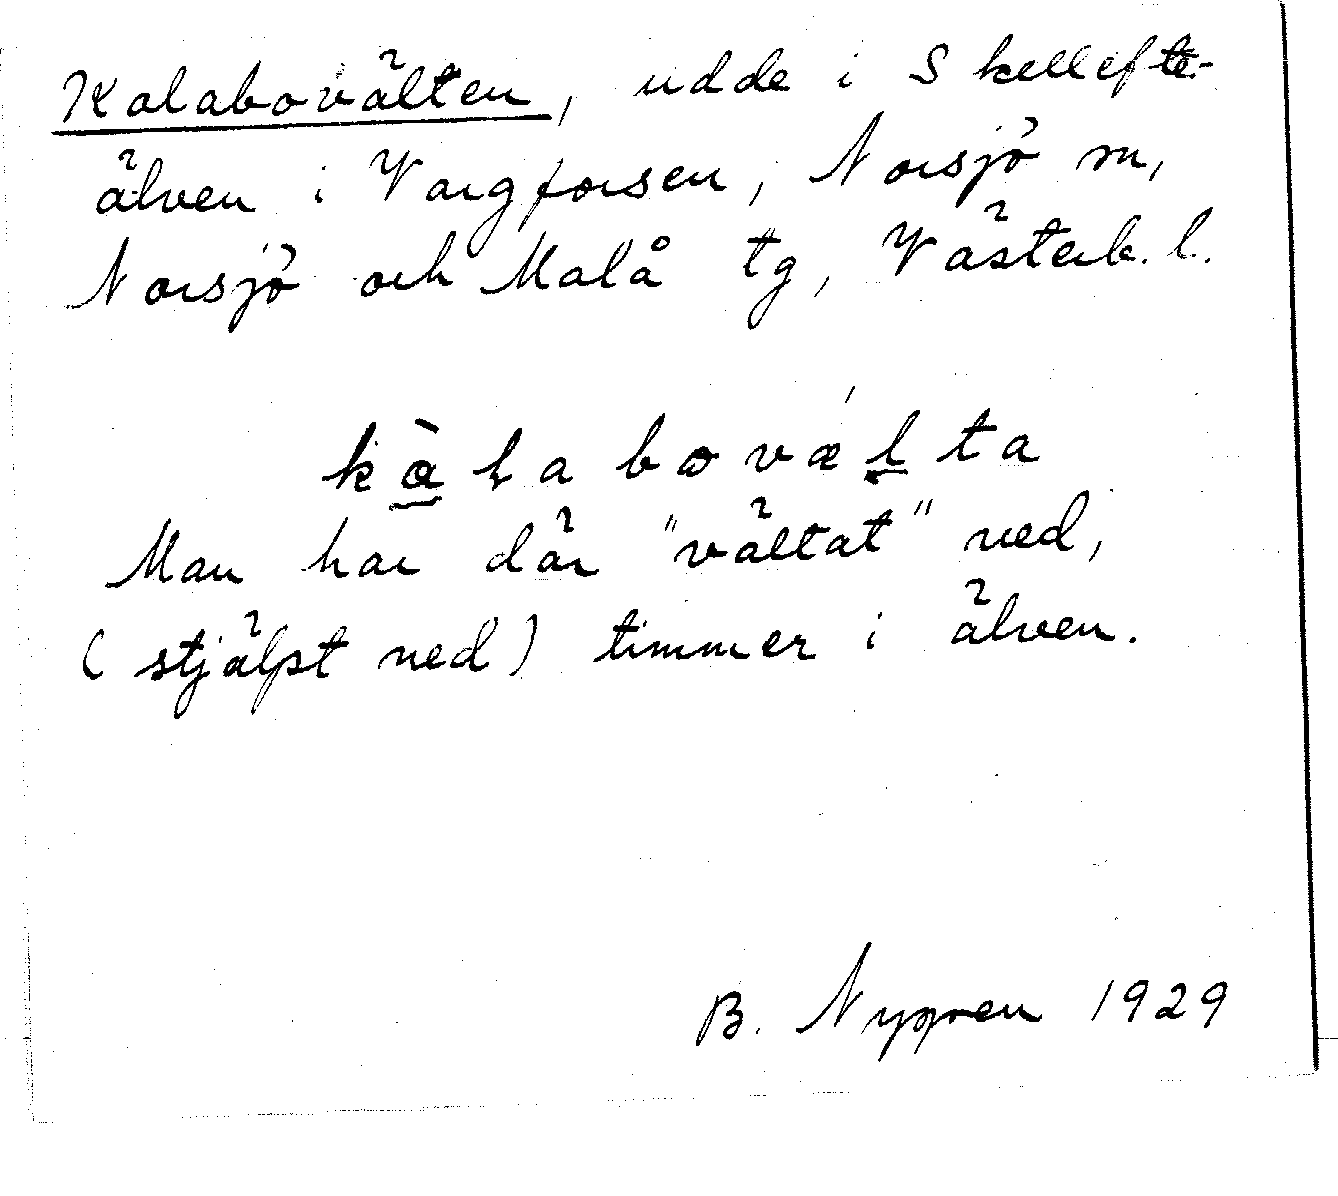 Kalabovälten, udde i Skellefte-
älven i Vargforsen, Norsjö sn,
Norsjö och Malå tg, Västerb. l.
kàlabovælta
Man har där "vältat" ned,
(stjälpt ned) timmer i älven.
B. Nygren 1929